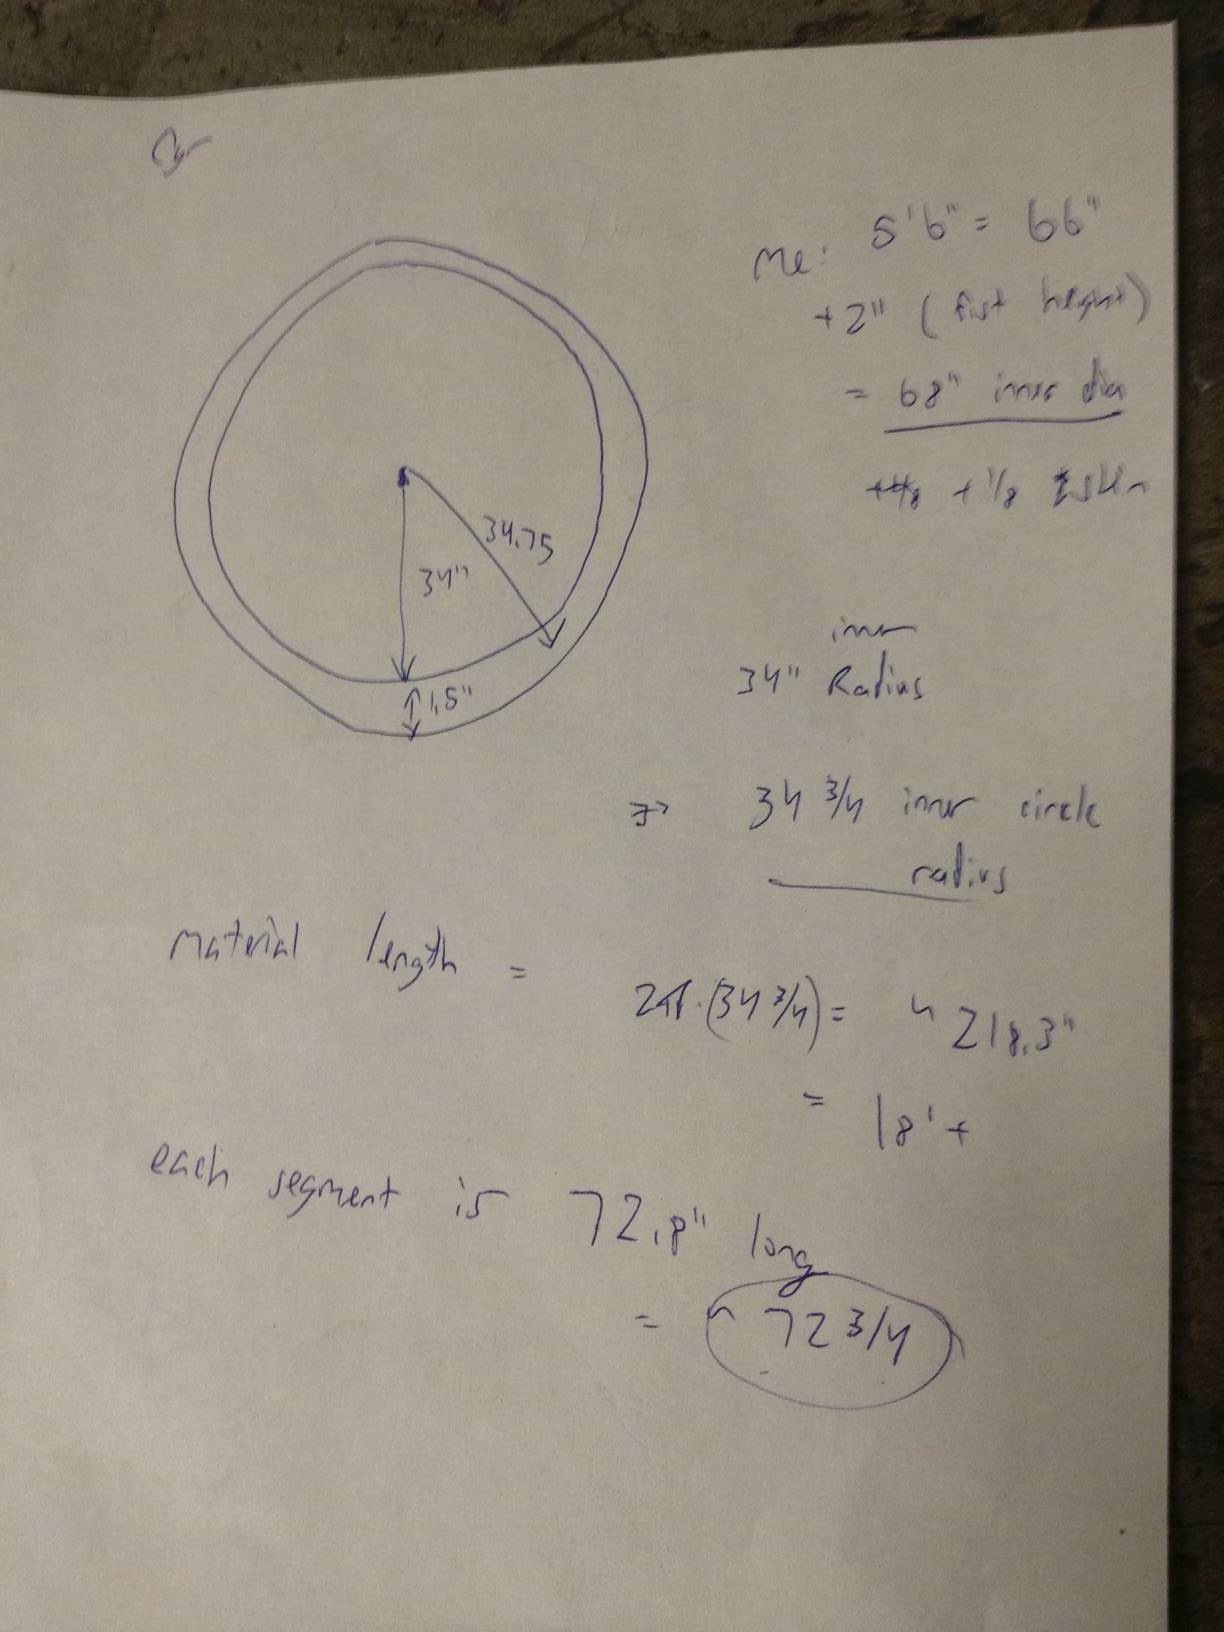 Cyr
Me: 5'6" = 66"
+2" (fist height)
= 68" inner dia
+1/8 + 1/8
34.75
34"
1.5"
inner
34" Radius
=> 34 3/4 inner circle
radius
material length = 2π·(34 3/4) = ~218.3"
= 18'+
each segment is 72.8" long
= ~72 3/4